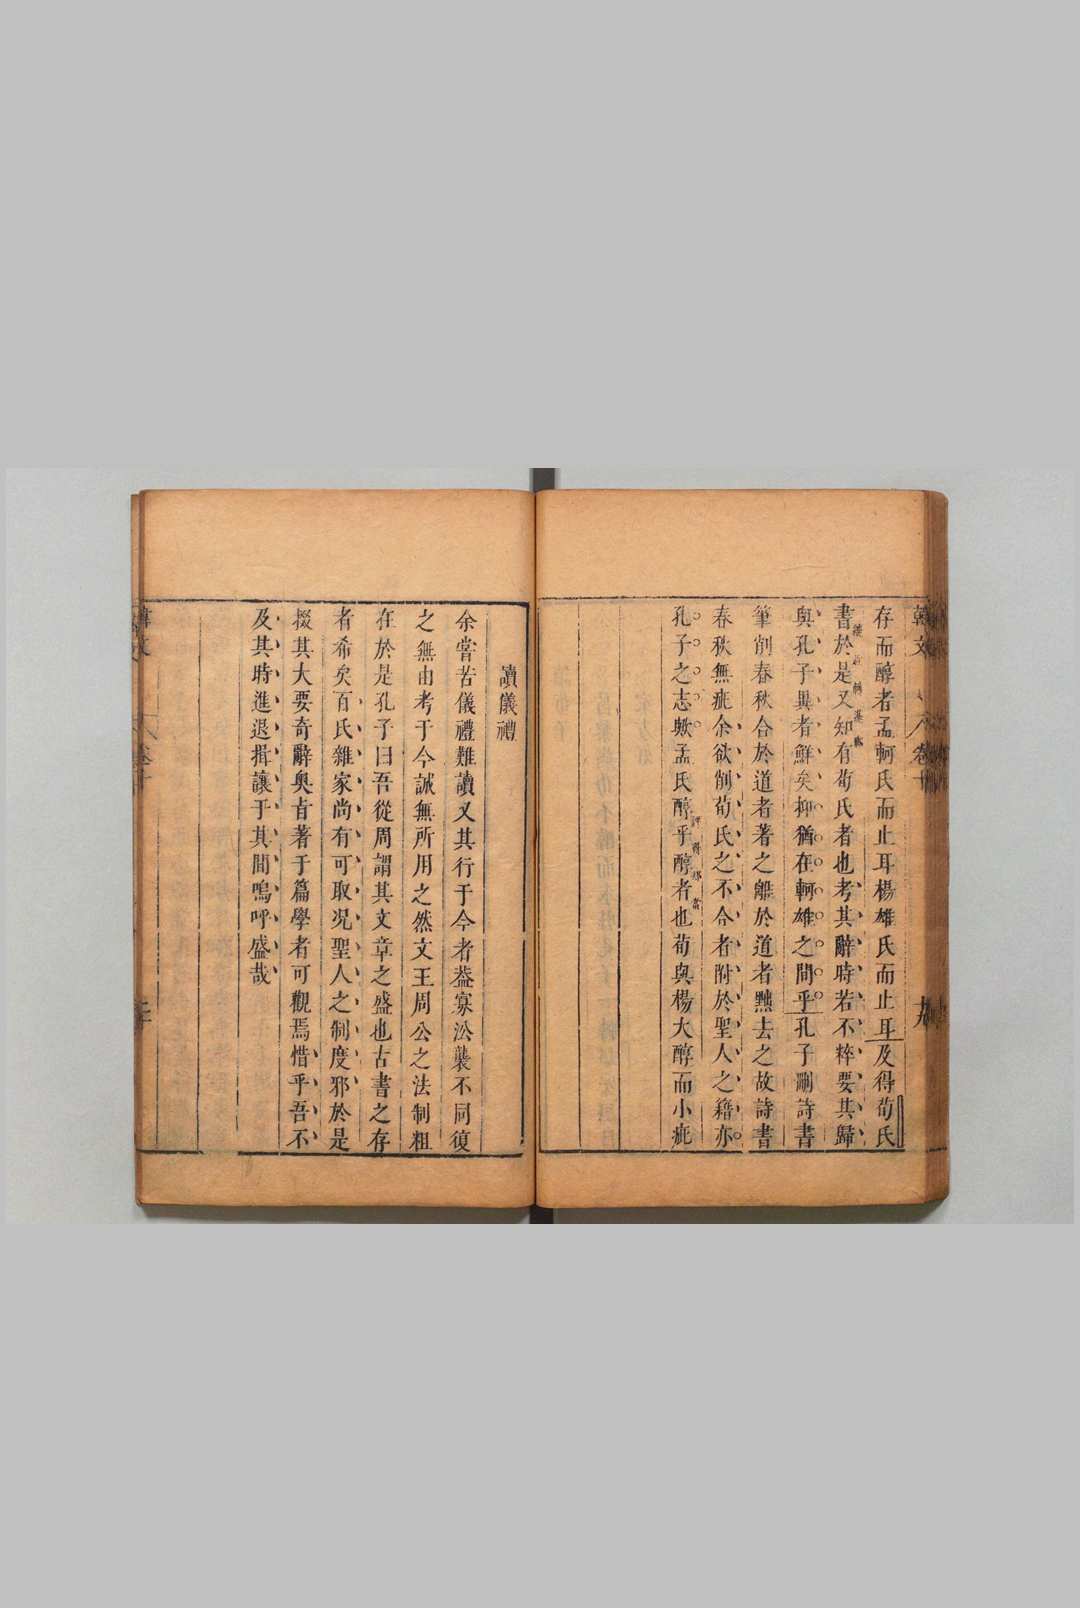 存而醇者孟軻氏而止耳楊雄氏而止耳及得荀氏
書於是又知有荀氏者也考其辭時若不粹要其歸
與孔子異者鮮矣抑猶在軻雄之間乎孔子刪詩書
筆削春秋合於道者著之離於道者黜去之故詩書
春秋無疵余欲削荀氏之不合者附於聖人之籍亦
孔子之志歟孟氏醇乎醇者也荀與楊大醇而小疵
讀儀禮
余嘗苦儀禮難讀又其行于今者葢寡沿襲不同復
之無由考于今誠無所用之然文王周公之法制粗
在於是孔子曰吾從周謂其文章之盛也古書之存
者希矣百氏雜家尚有可取况聖人之制度邪於是
掇其大要奇辭奥旨著于篇學者可觀焉惜乎吾不
及其時進退揖讓于其間嗚呼盛哉